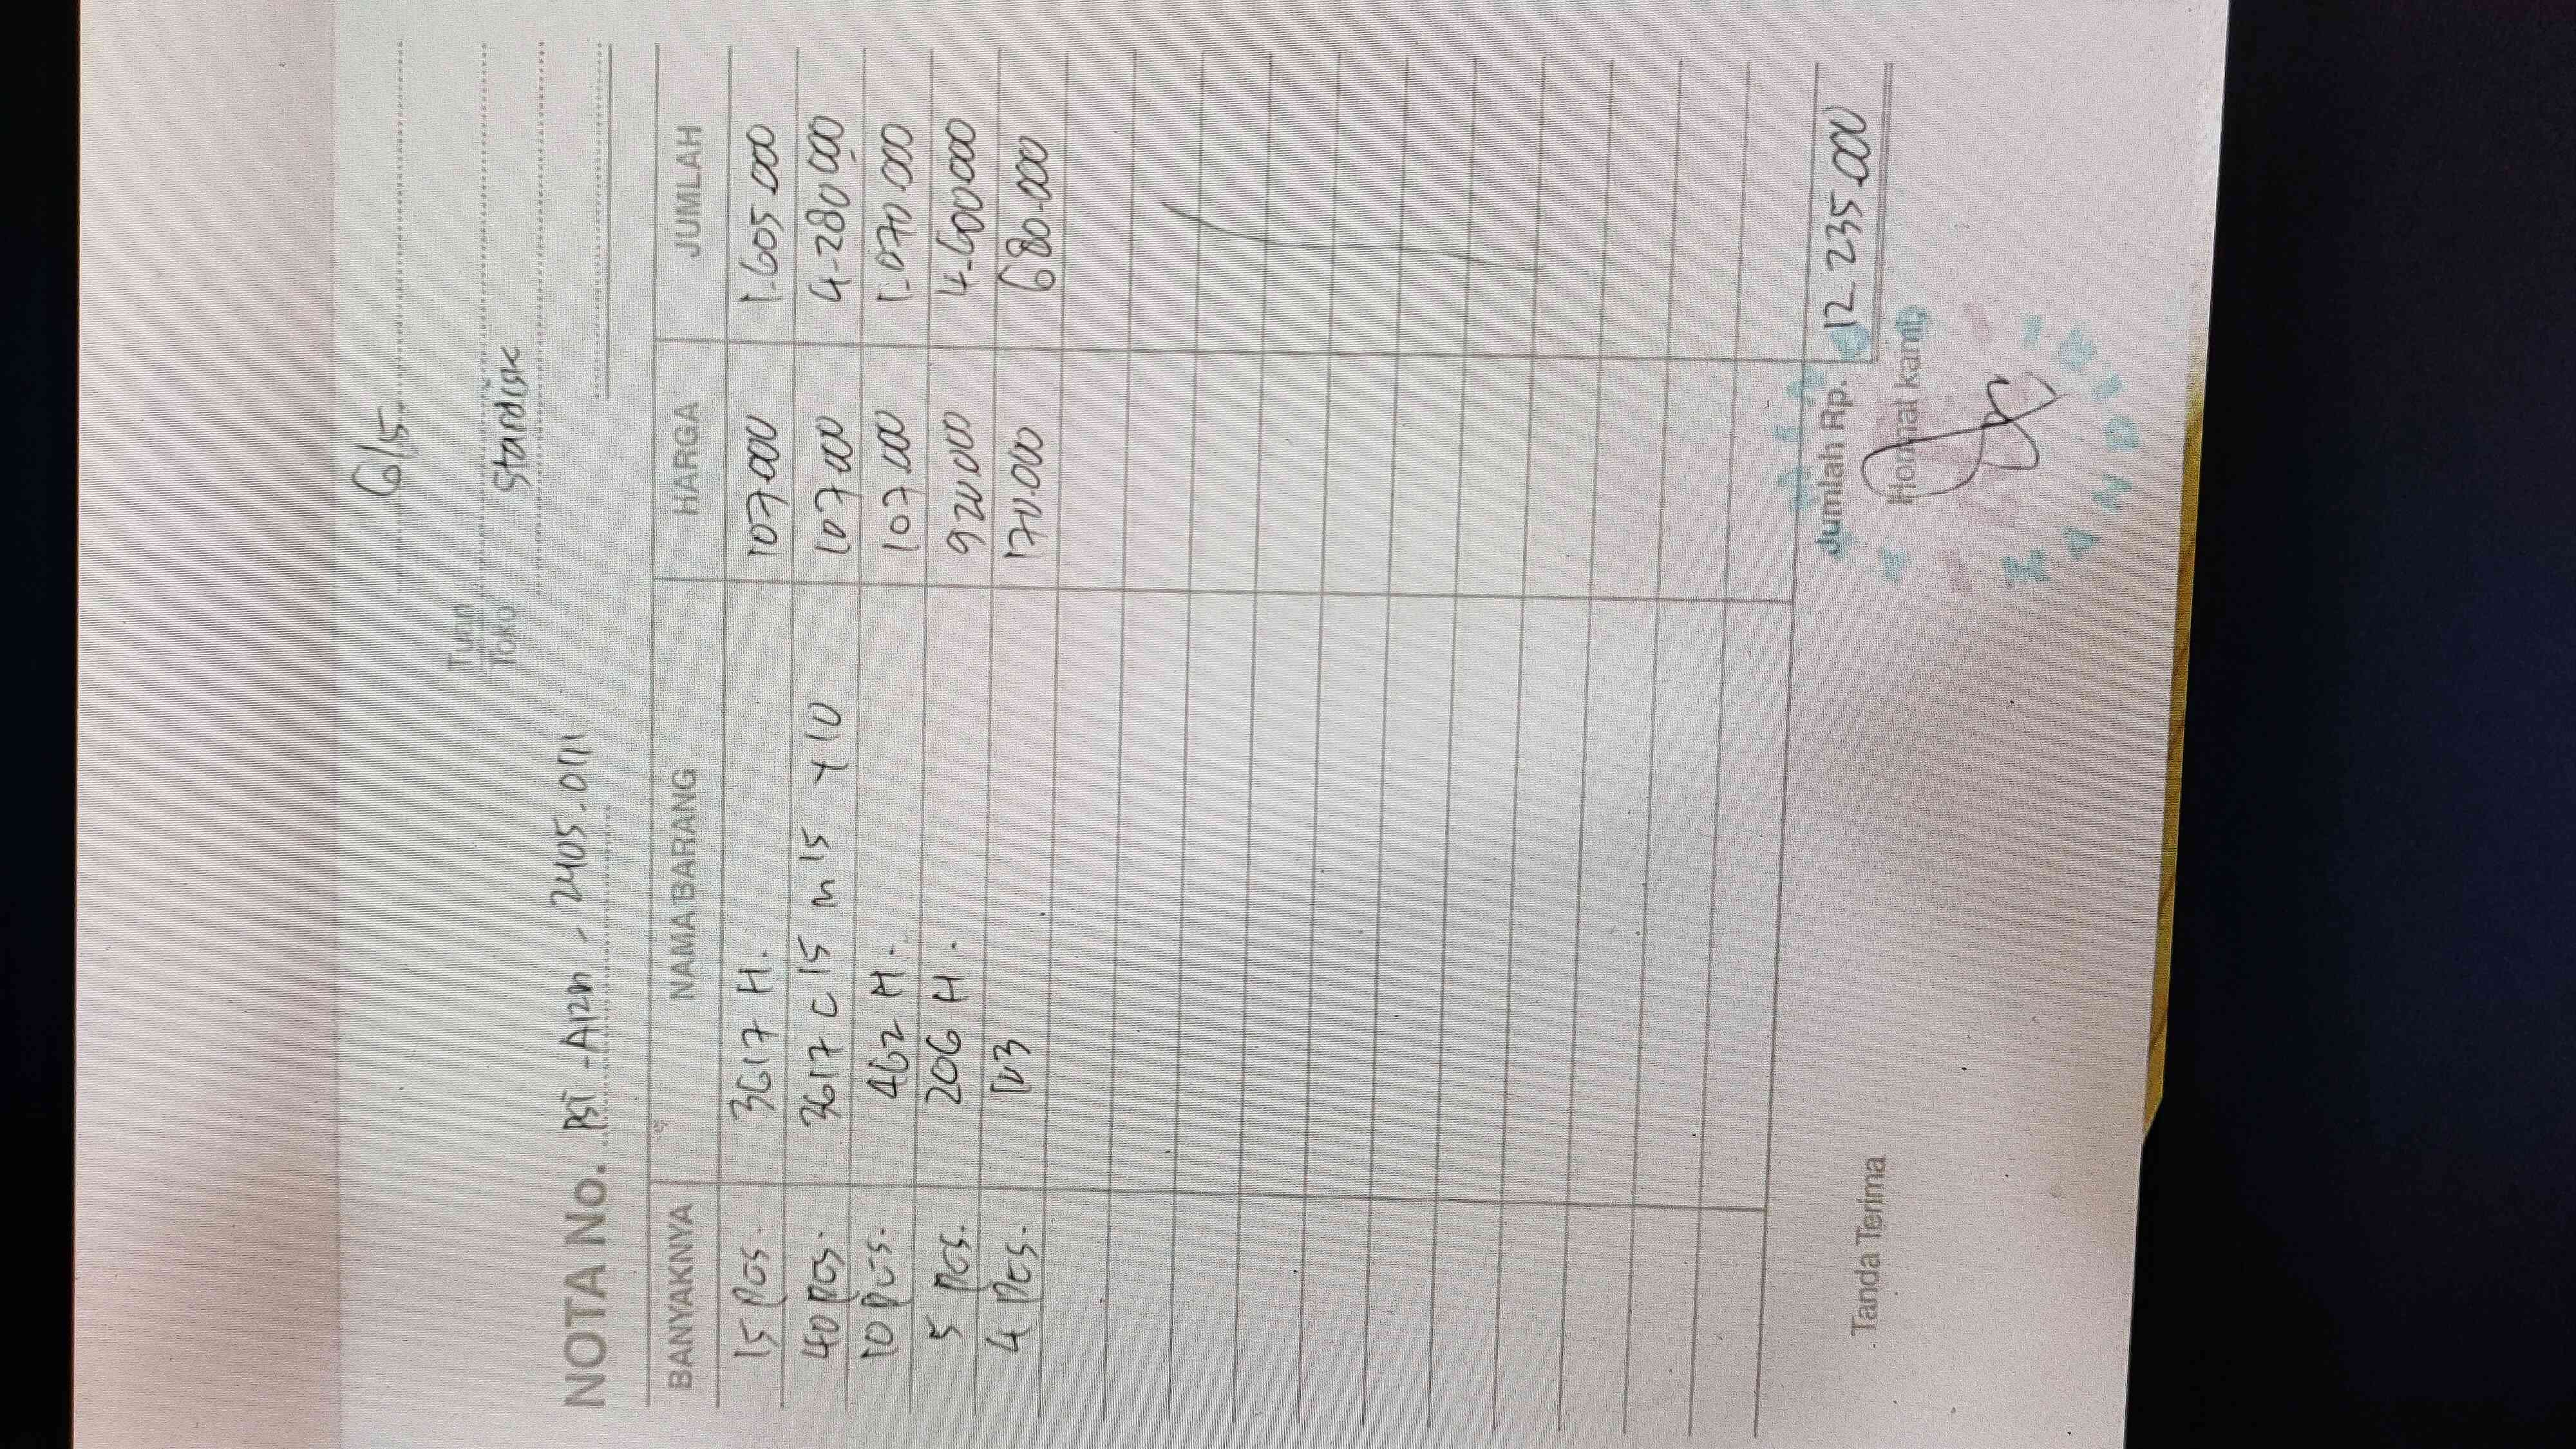 6/5
Tuan
Toko Stardisk
NOTA No. PSI - A12n - 2405.0111
BANYAKNYA NAMA BARANG HARGA JUMLAH
15 Pcs. 3617 H. 107.000 1.605.000
40 Pcs. 3617 C 15 m 15 Y 10 107.000 4.280.000
10 Pcs. 462 H. 107.000 1.070.000
5 Pcs. 206 H. 920.000 4.600.000
4 Pcs. 103 170.000 680.000
Jumlah Rp. 12.235.000
Tanda Terima Hormat kami,